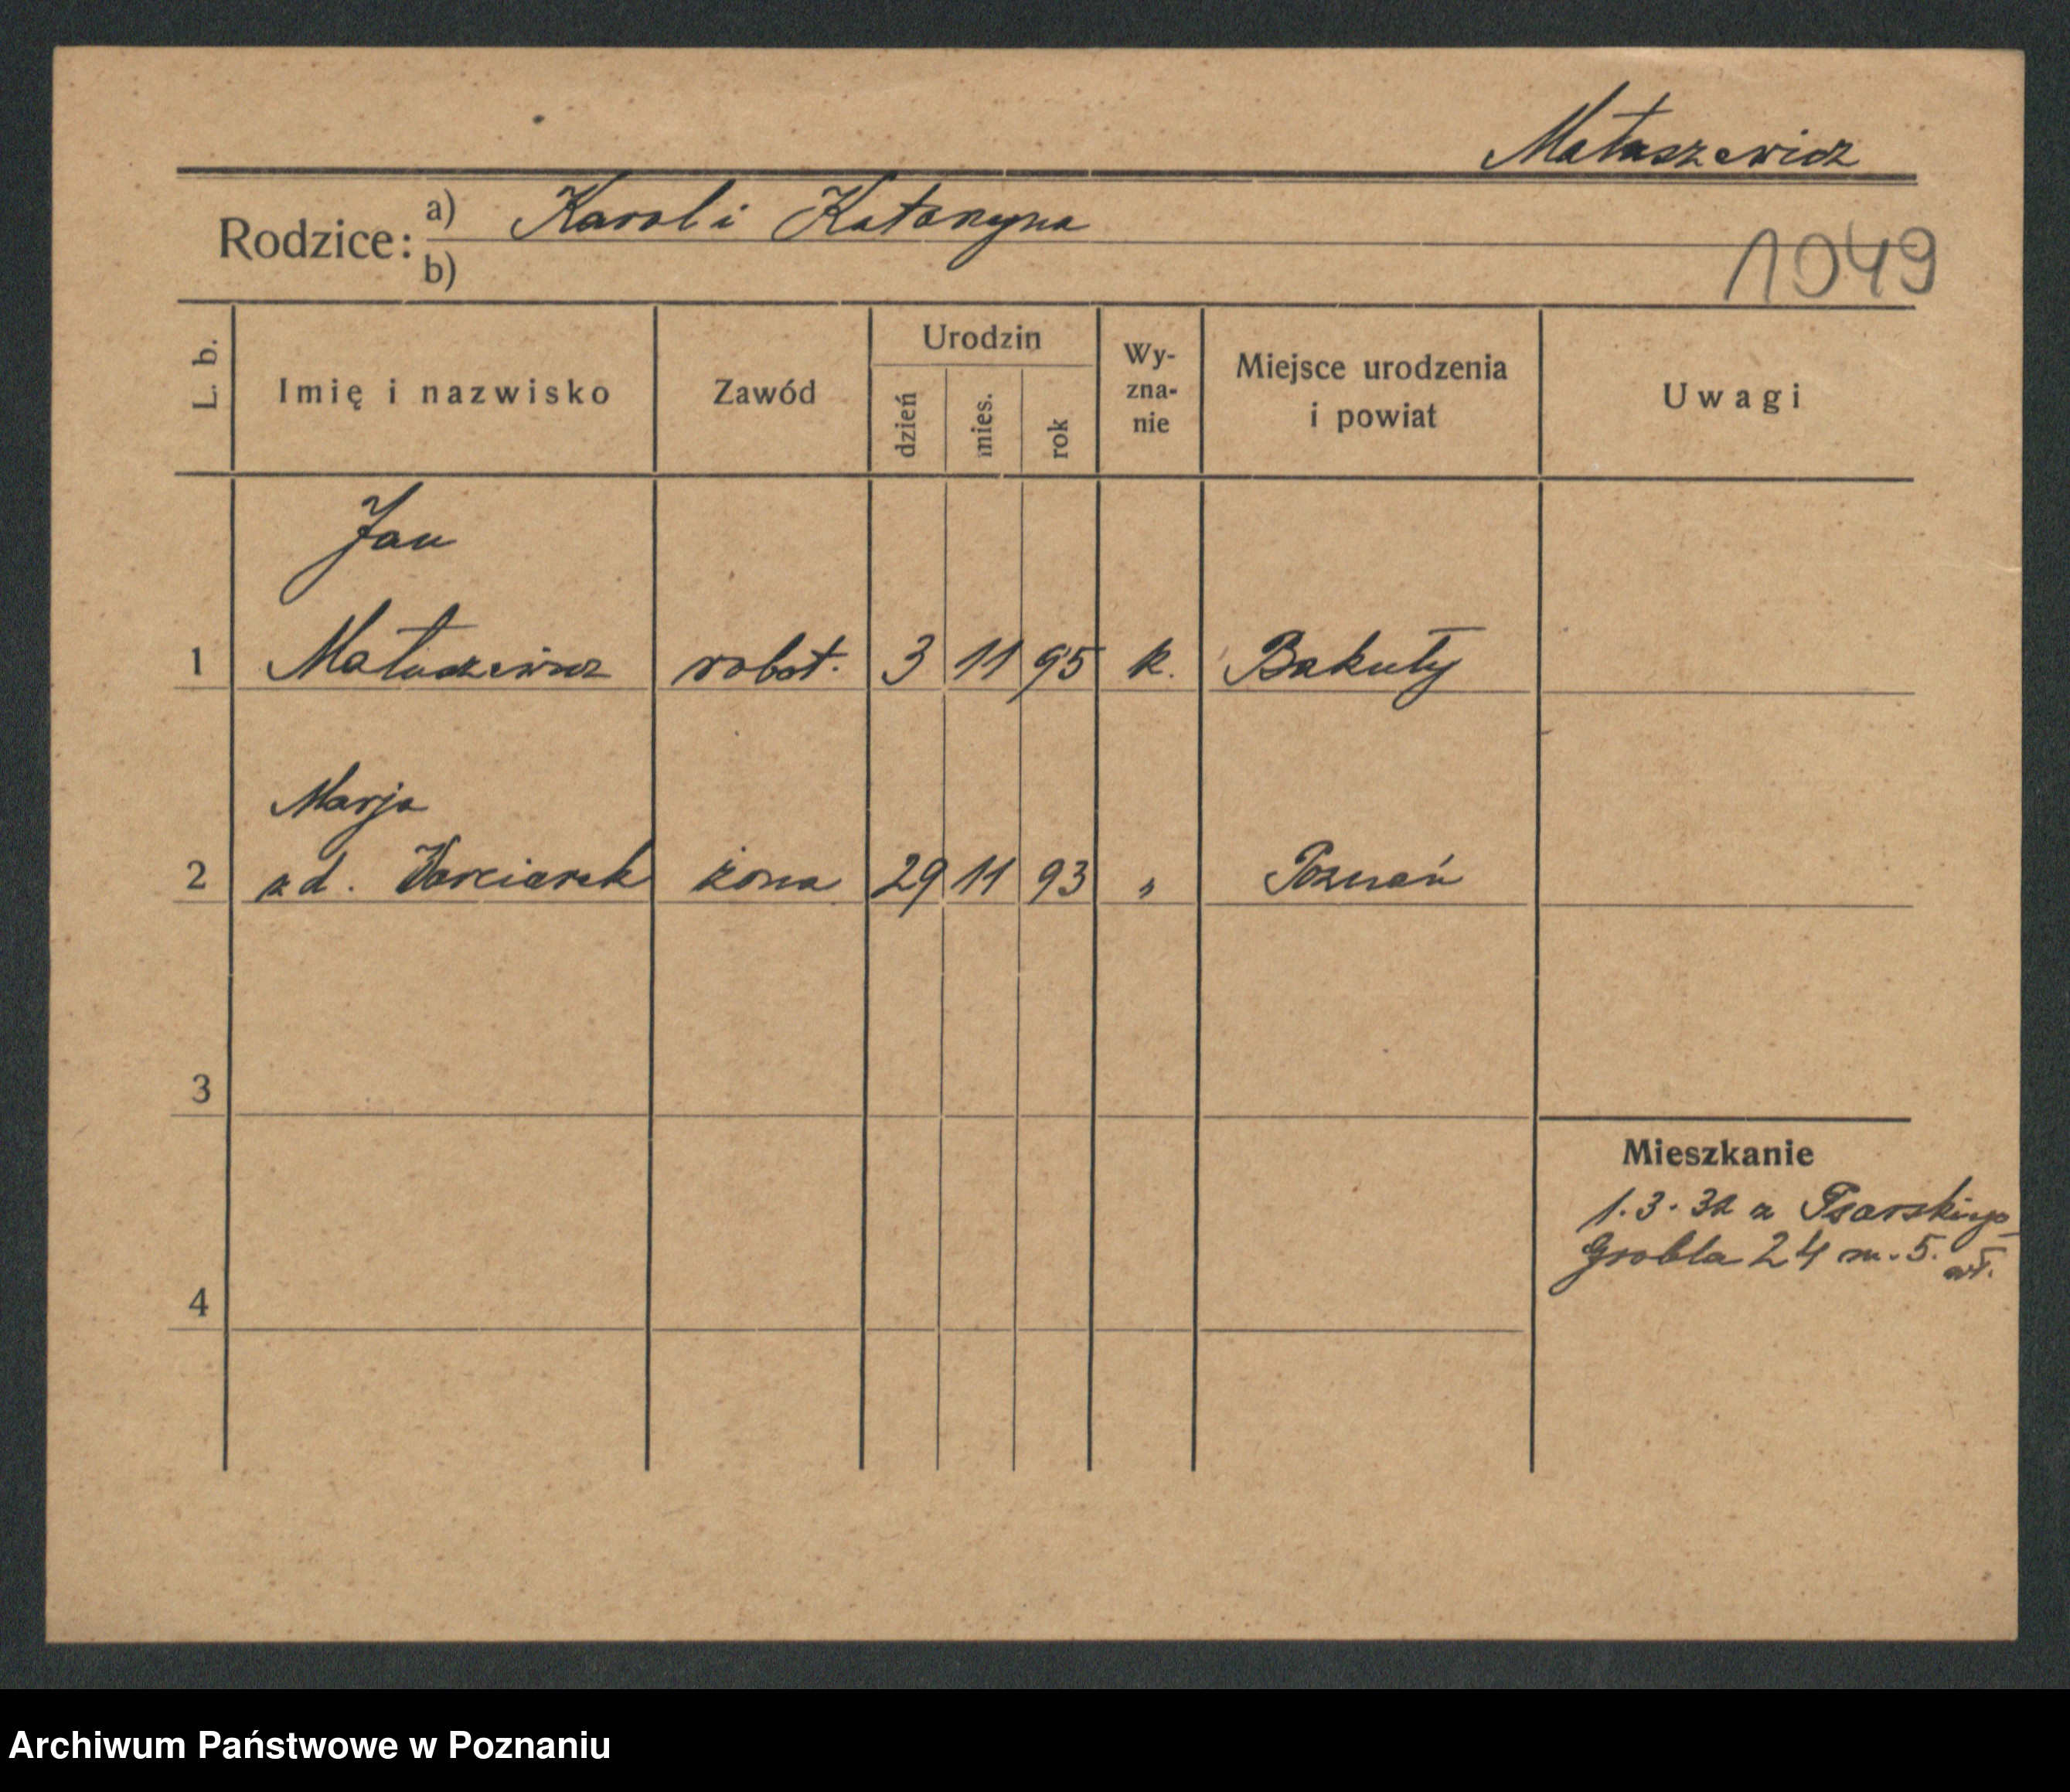 Matuszewicz
Rodzice: a) Karol i Katarzyna
b)
1049
L. b.
Imię i nazwisko
Zawód
Urodzin
dzień
mies.
rok
Wy-
zna-
nie
Miejsce urodzenia
i powiat
Uwagi
Jan
1 Matuszewicz robot. 3 11 95 k. Bakuły
Marja
2 z d. żona 29 11 93 " Poznań
3
Mieszkanie
1.3. z Psarskiego
Grobla 24 m. 5.
4
Archiwum Państwowe w Poznaniu